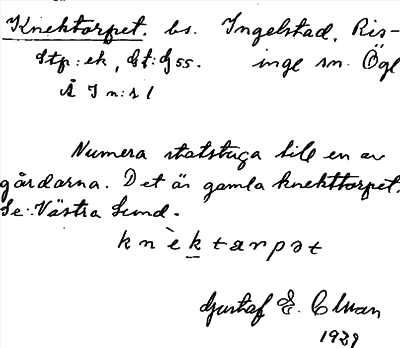 Knektorpet. bs. Ingelstad, Ris-
Stp: ek, Gt: G 55. inge sn. Ögl
Å I n:s 1
Numera statstuga till en av
gårdarna. Det är gamla knekttorpet.
Se: Västra Lund.
knèktarpət
Gustaf E.
1929